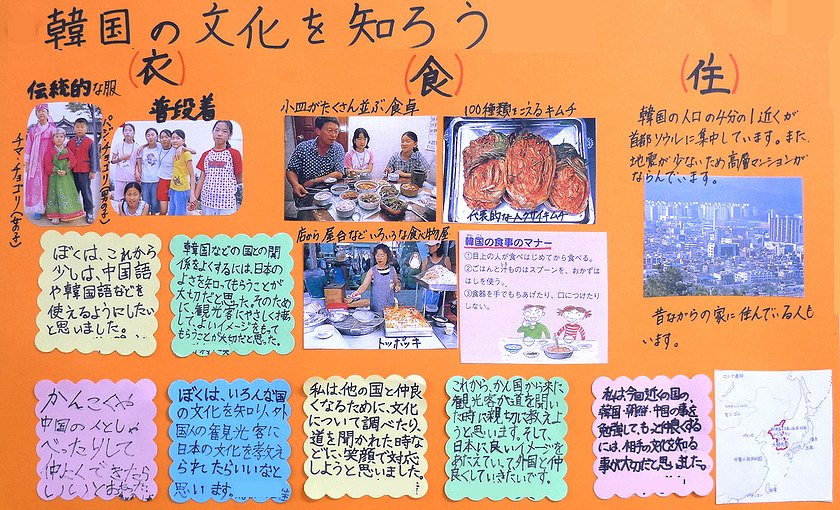 韓国の文化を知ろう
(衣)
伝統的な服
普段着
パジ・チョゴリ(男の子)
チマ・チョゴリ(女の子)
(食)
小皿がたくさん並ぶ食卓
100種類をこえるキムチ
代表的なハクサイキムチ
店から屋台などいろいろな食べ物屋
トッポッキ
韓国の食事のマナー
①目上の人が食べはじめてから食べる。
②ごはんと汁ものはスプーンを、おかずは
はしを使う。
③食器を手でもちあげたり、口につけたり
しない。
(住)
韓国の人口の4分の1近くが
首都ソウルに集中しています。また、
地震が少ないため高層マンションが
ならんでいます。
昔ながらの家に住んでいる人も
います。
ぼくは、これから
少しは、中国語
や韓国語なども
使えるようにしたい
と思いました。
韓国などの国との関
係をよくするには、日本の
よさを知ってもらうことが
大切だと思った。そのため
に、観光客にやさしく接
して、よいイメージをもって
もらうことが大切だと思った。
かんこくや
中国の人としゃ
べったりして
仲よくできたら
いいなと思った。
ぼくは、いろんな国
の文化を知り、外
国人の観光客に
日本の文化を教えら
られたらいいなと
思います。
私は、他の国と仲良
くなるために、文化
について調べたり、
道を聞かれた時な
どに、笑顔で対応
しようと思いました。
これから、かん国から来た
観光客が道を聞い
た時に親切に教えよ
うと思います。そして、
日本に良いイメージを
あたえていって外国と仲
良くしていきたいです。
私は今回近くの国、
韓国・朝鮮・中国の事を
勉強して、もっと仲良くする
には、相手の文化を知る
事が大切だと思いました。